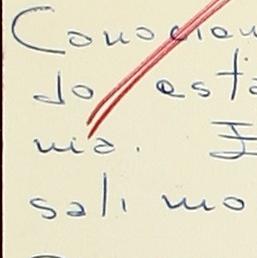 Conocien
do esta
nia.
sali mo